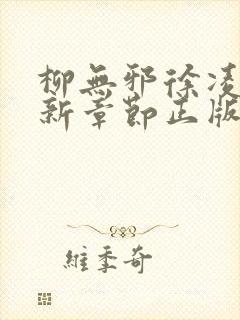 柳無邪徐凌
新章節正版
維季奇